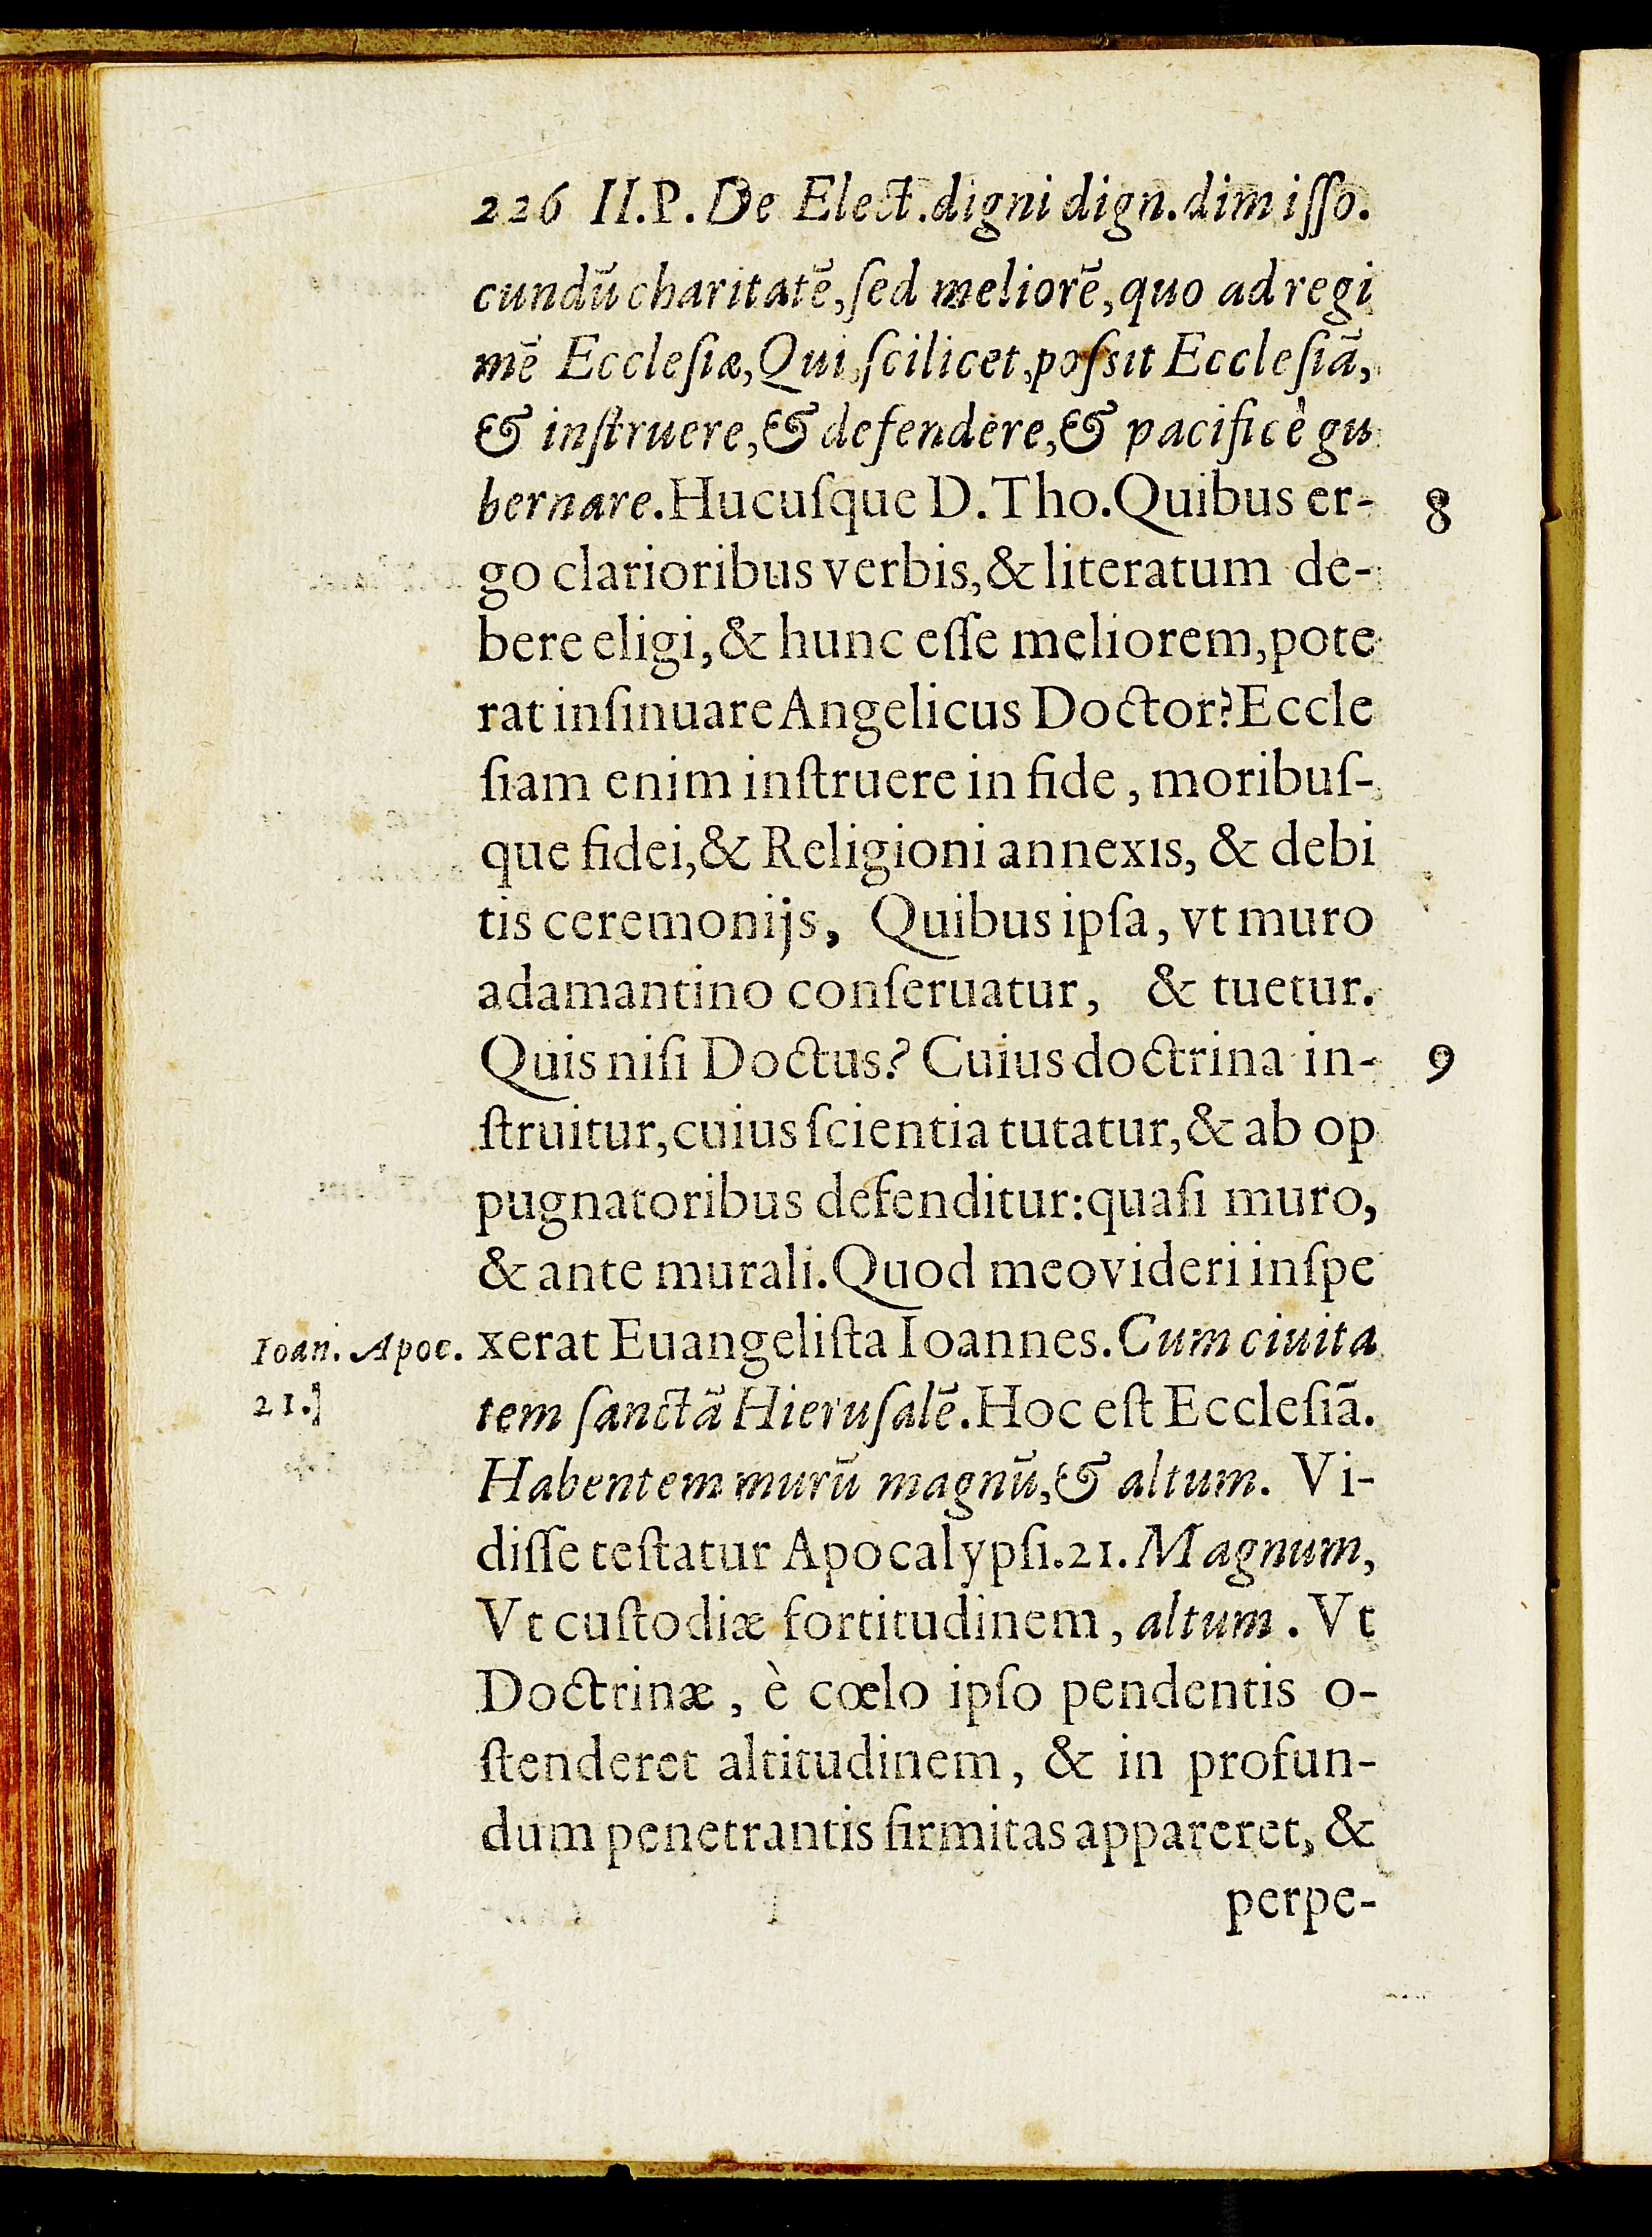 226 II.P. De Elect.digni dign.dimiſſo.
cundū charitatē,ſed meliorē,quo ad regi
mē Eccleſiæ,Qui,ſcilicet,poſsit Eccleſiā,
& inſtruere,& defendere,& pacificè gu
bernare.Hucuſque D.Tho.Quibus er-
8
go clarioribus verbis,& literatum de-
bere eligi,& hunc eſſe meliorem,pote
rat inſinuare Angelicus Doctor?Eccle
ſiam enim inſtruere in fide, moribuſ-
que fidei,& Religioni annexis, & debi
tis ceremonijs, Quibus ipſa, vt muro
adamantino conſeruatur, & tuetur.
Quis niſi Doctus? Cuius doctrina in-
9
ſtruitur,cuius ſcientia tutatur,& ab op
pugnatoribus defenditur:quaſi muro,
& ante murali.Quod meo videri inſpe
Ioan. Apoc.
21.]
xerat Euangeliſta Ioannes.Cum ciuita
tem ſanctā Hieruſalē.Hoc eſt Eccleſiā.
Habentem murū magnū,& altum. Vi-
diſſe teſtatur Apocalypſi.21.Magnum,
Vt cuſtodiæ fortitudinem, altum. Vt
Doctrinæ, è cœlo ipſo pendentis o-
ſtenderet altitudinem, & in profun-
dum penetrantis firmitas appareret, &
perpe-